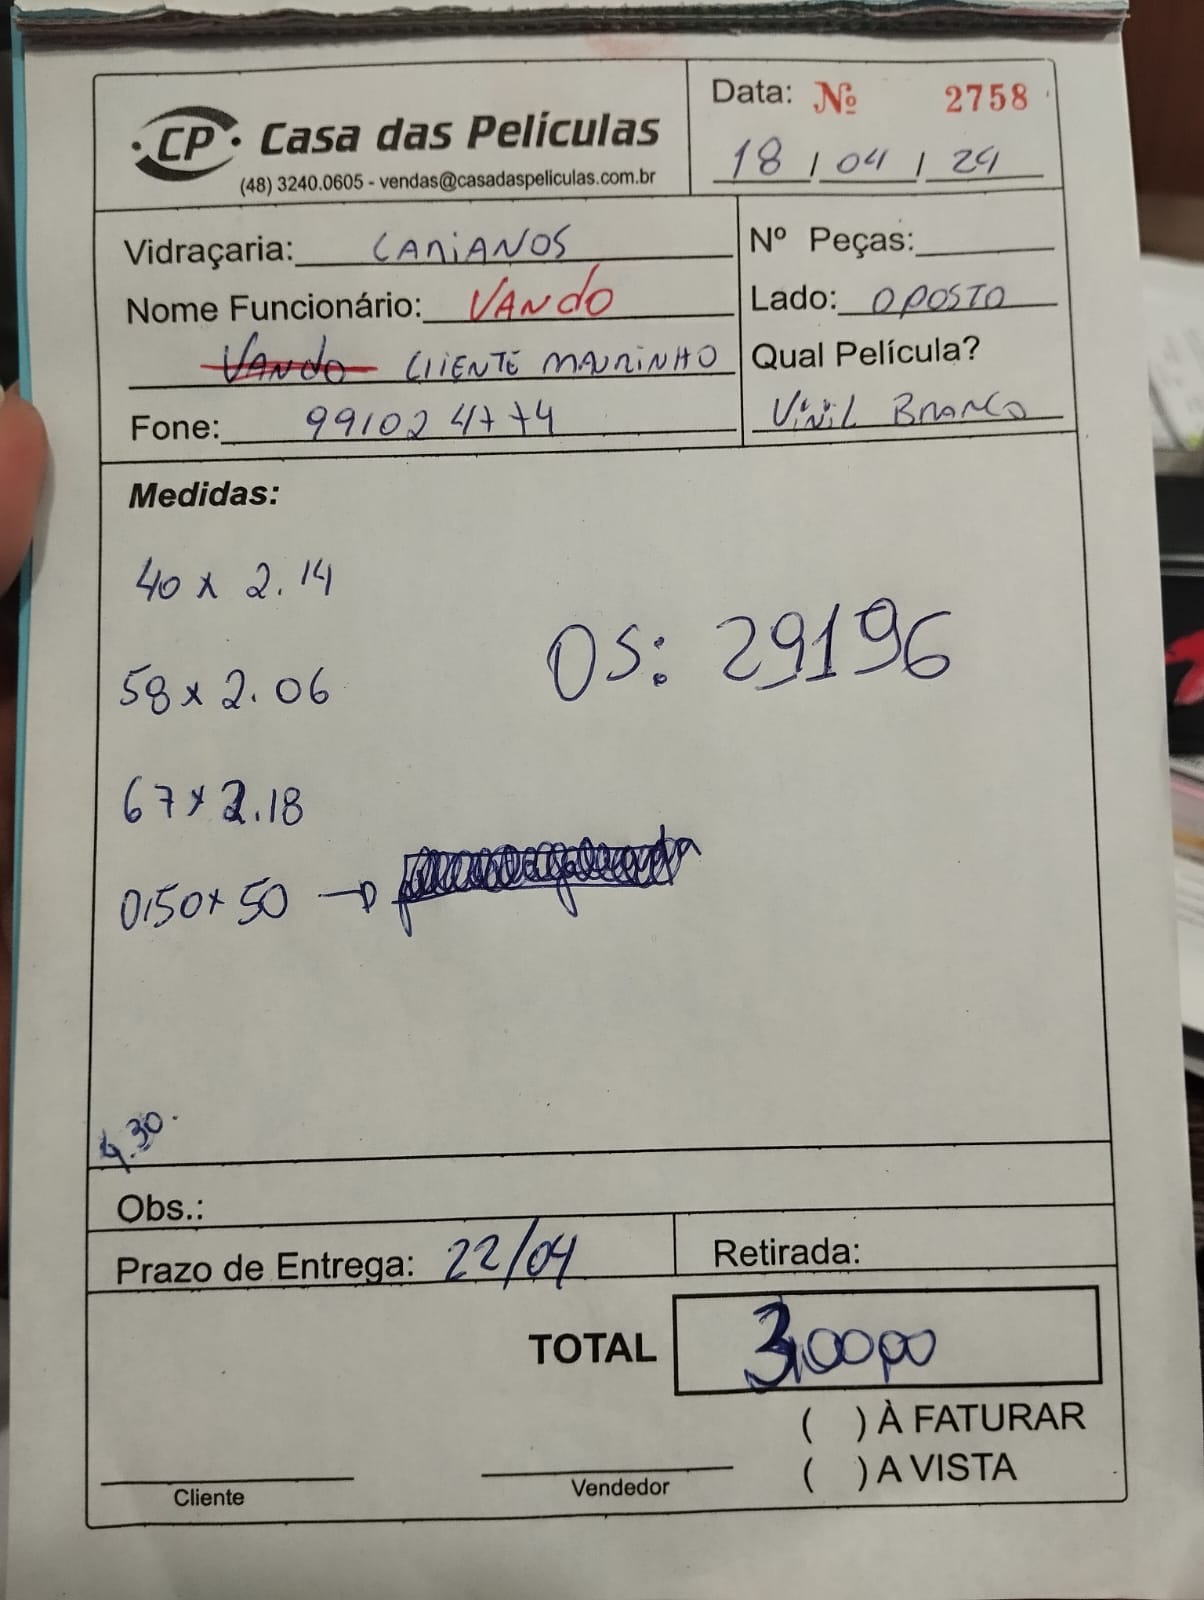 CP Casa das Películas
(48) 3240.0605 - vendas@casadaspeliculas.com.br
Data: Nº 2758
18 / 04 / 24
Vidraçaria: CANIANOS
Nome Funcionário: VANDO
VANDO CLIENTE MAURINHO
Fone: 991024774
Nº Peças:
Lado: OPOSTO
Qual Película?
VINIL BRANCO
Medidas:
40 x 2.14
OS: 29196
58 x 2.06
67 x 2.18
0,50 x 50 →
4.30.
Obs.:
Prazo de Entrega: 22/04
Retirada:
TOTAL 3,0000
( ) À FATURAR
( ) A VISTA
Cliente
Vendedor